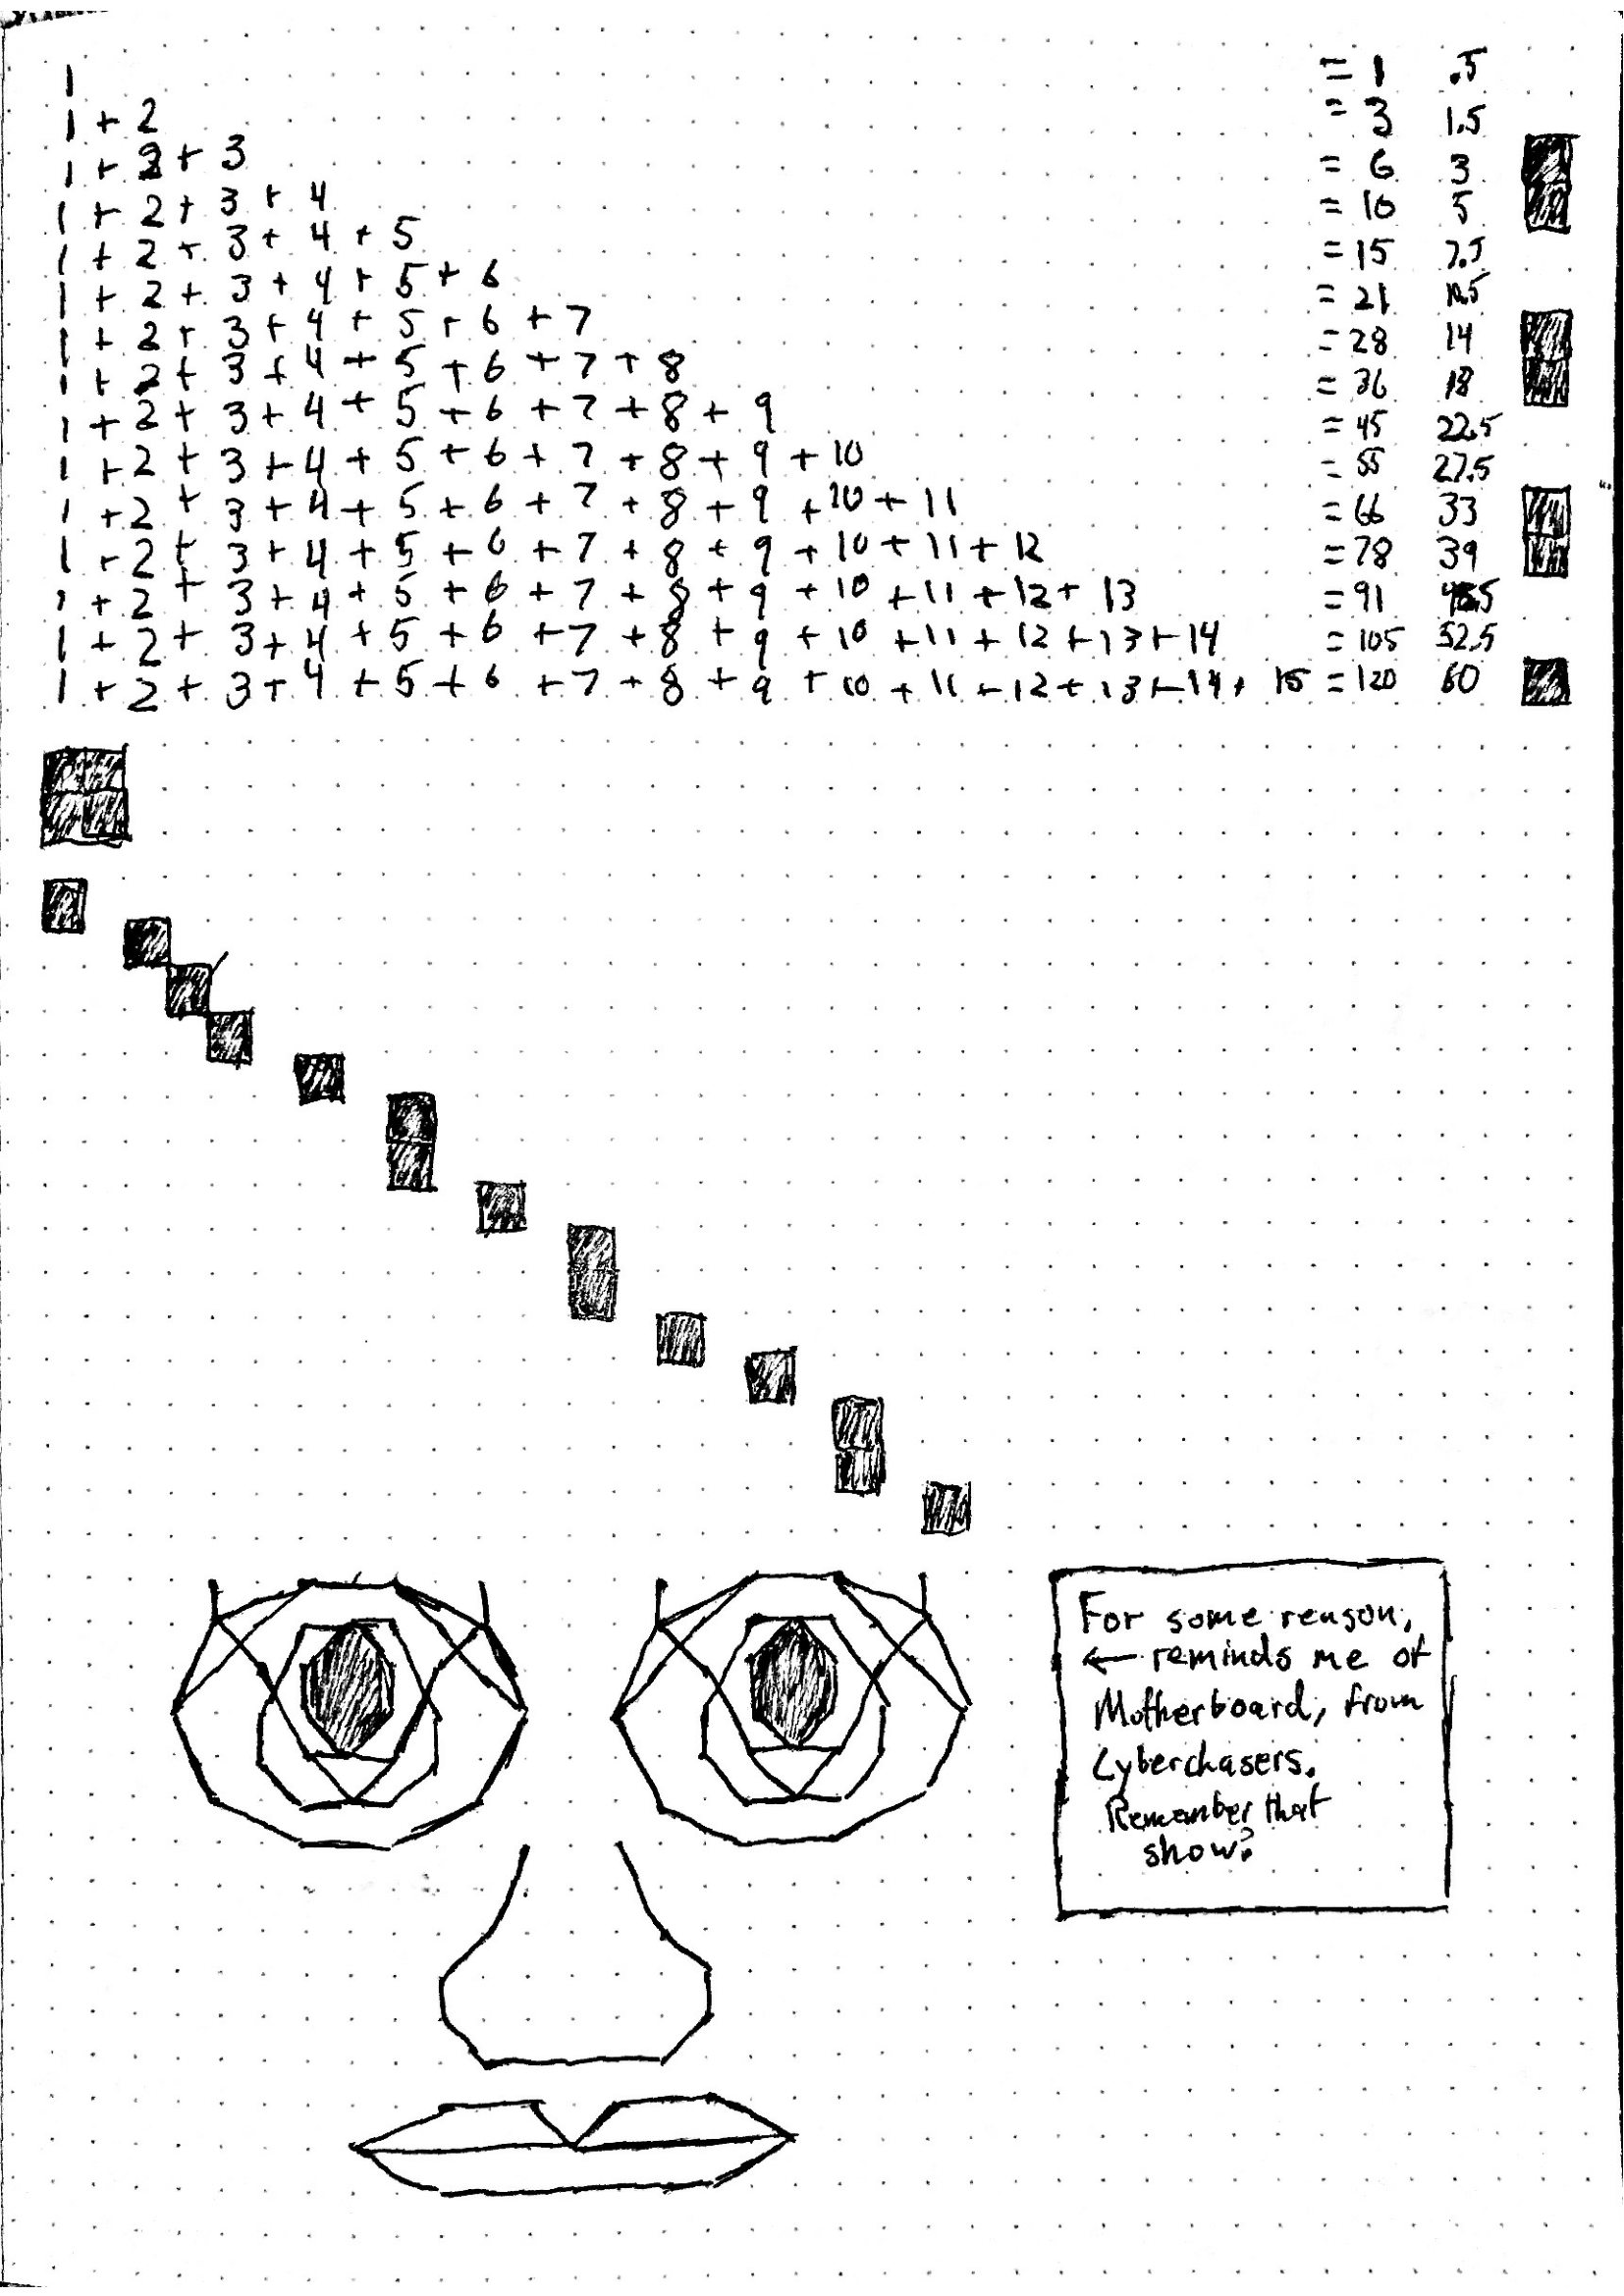 1 = 1 .5
1 + 2 = 3 1.5
1 + 2 + 3 = 6 3
1 + 2 + 3 + 4 = 10 5
1 + 2 + 3 + 4 + 5 = 15 7.5
1 + 2 + 3 + 4 + 5 + 6 = 21 10.5
1 + 2 + 3 + 4 + 5 + 6 + 7 = 28 14
1 + 2 + 3 + 4 + 5 + 6 + 7 + 8 = 36 18
1 + 2 + 3 + 4 + 5 + 6 + 7 + 8 + 9 = 45 22.5
1 + 2 + 3 + 4 + 5 + 6 + 7 + 8 + 9 + 10 = 55 27.5
1 + 2 + 3 + 4 + 5 + 6 + 7 + 8 + 9 + 10 + 11 = 66 33
1 + 2 + 3 + 4 + 5 + 6 + 7 + 8 + 9 + 10 + 11 + 12 = 78 39
1 + 2 + 3 + 4 + 5 + 6 + 7 + 8 + 9 + 10 + 11 + 12 + 13 = 91
1 + 2 + 3 + 4 + 5 + 6 + 7 + 8 + 9 + 10 + 11 + 12 + 13 + 14 = 105 52.5
1 + 2 + 3 + 4 + 5 + 6 + 7 + 8 + 9 + 10 + 11 + 12 + 13 + 14 + 15 = 120 60
For some reason,
← reminds me of
Motherboard, from
Cyberchasers.
Remember that
show?